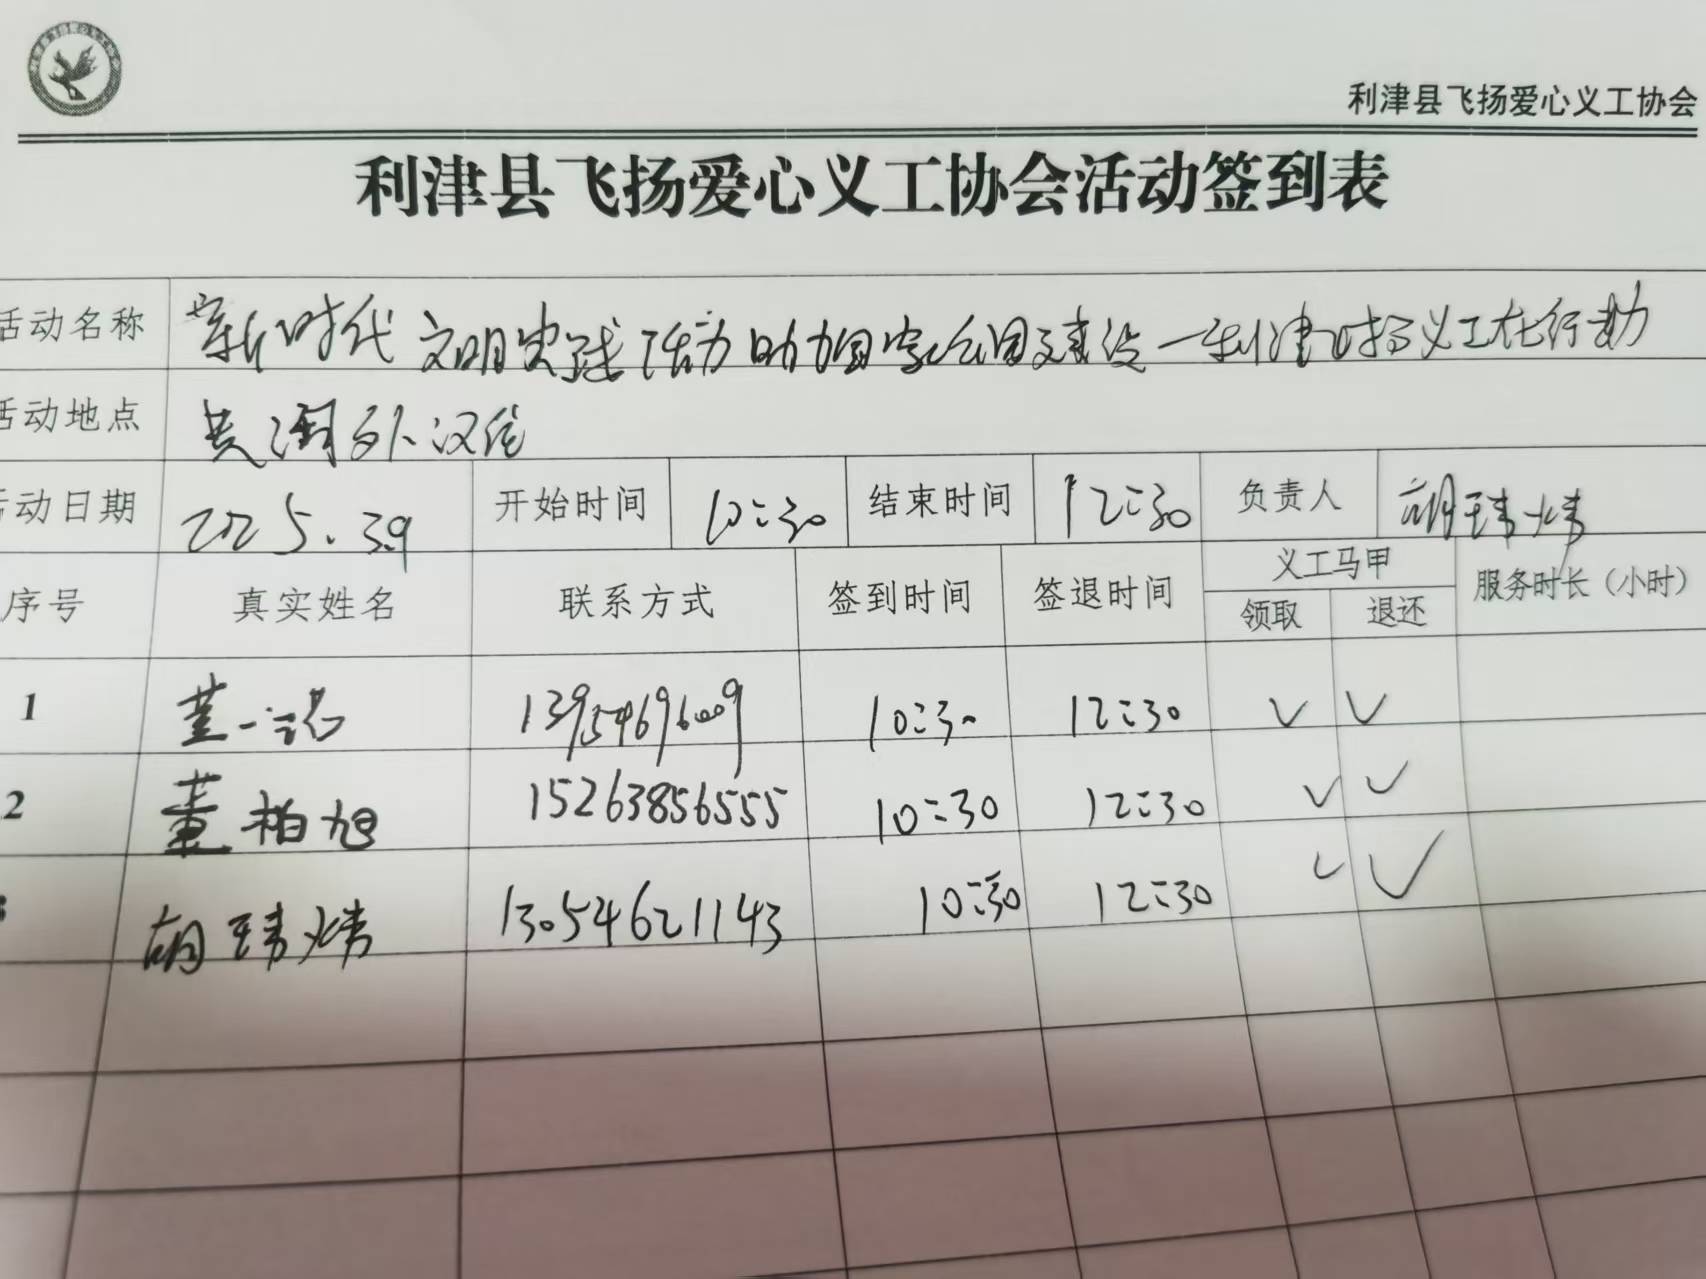 利津县飞扬爱心义工协会
利津县飞扬爱心义工协会活动签到表
活动名称 新时代文明实践活动助力国家公园建设一利津飞扬义工在行动
活动地点
活动日期 2025.3.9 开始时间 10:30 结束时间 12:30 负责人 胡玮炜
序号 真实姓名 联系方式 签到时间 签退时间 义工马甲 服务时长（小时）
领取 退还
1 董一诺 13954696009 10:30 12:30 √ √
2 董柏旭 15263856555 10:30 12:30 √ √
3 胡玮炜 13054621143 10:30 12:30 √ √